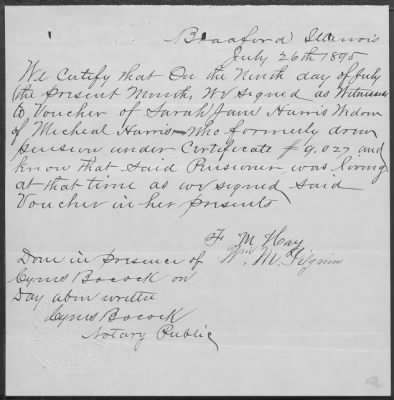 Bradford Illinois
July 26th 1895
We Certify that On the Ninth day of July
(the Present Month, We signed as Witnesses
to Voucher of Sarah Jane Harris Widow
of Micheal Harris - who formerly drew
pension under Certificate # 9.027 and
know that said Pensioner was living
at that time as we signed said
Voucher in her presents
F. M. Hay
Wm. M. Pilgrim
Done in presence of
Cyrus Bocock on
Day above written
Cyrus Bocock
Notary Public